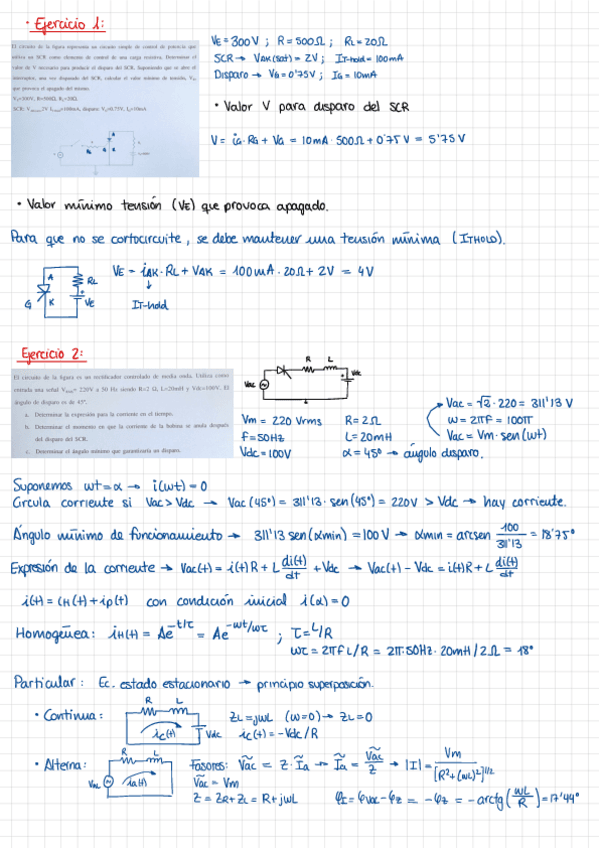 · Ejercicio 1:
El circuito de la figura representa un circuito simple de control de potencia que
utiliza un SCR como elemento de control de una carga resistiva. Determinar el
valor de V necesario para producir el disparo del SCR. Suponiendo que se abre el
interruptor, una vez disparado del SCR, calcular el valor mínimo de tensión, VE,
que provoca el apagado del mismo
VE=300V ; R=500Ω ; RL=20Ω
SCR → VAK(sat) = 2V ; IT-hold = 100mA
Disparo → VG=0'75V ; IG=10mA
· Valor V para disparo del SCR
V = iG·RG + VG = 10mA · 500Ω + 0'75V = 5'75V
· Valor mínimo tensión (VE) que provoca apagado.
Para que no se cortocircuite, se debe mantener una tensión mínima (ITHOLD).
A
G K
RL
Ve
VE = iAK · RL + VAK = 100mA · 20Ω + 2V = 4V
↓
IT-hold
Ejercicio 2:
El circuito de la figura es un rectificador controlado de media onda. Utiliza como
entrada una señal Vrms= 220V a 50 Hz siendo R=2 Ω, L=20mH y Vdc=100V. El
ángulo de disparo es de 45°.
a. Determinar la expresión para la corriente en el tiempo.
b. Determinar el momento en que la corriente de la bobina se anula después
del disparo del SCR.
c. Determinar el ángulo mínimo que garantizaría un disparo.
R L
Vac
Vdc
Vm = 220 Vrms R=2Ω
f=50Hz L=20mH
Vdc=100V α=45° → ángulo disparo.
Vac = √2 · 220 = 311'13 V
ω = 2πf = 100π
Vac = Vm · sen(ωt)
Suponemos ωt=α → i(ωt)=0
Circula corriente si Vac > Vdc → Vac(45°) = 311'13 · sen(45°) = 220V > Vdc → hay corriente.
Ángulo mínimo de funcionamiento → 311'13 sen(αmin) = 100V → αmin = arcsen 100/311'13 = 18'75°
Expresión de la corriente → Vac(t) = i(t)R + L di(t)/dt + Vdc → Vac(t) - Vdc = i(t)R + L di(t)/dt
i(t) = iH(t) + ip(t) con condición inicial i(α)=0
Homogénea: iH(t) = Ae^-t/τ = Ae^-ωt/ωτ ; τ=L/R
ωτ = 2πf L/R = 2π·50Hz · 20mH / 2Ω = 18°
Particular: Ec. estado estacionario → principio superposición.
R L
· Continua: ic(t) Vdc ZL=jωL (ω=0) → ZL=0
ic(t) = -Vdc/R
R L
· Alterna: Vac ia(t) Fasores: Ṽac = Z · Ĩa → Ĩa = Ṽac/Z → |I| = Vm/[R²+(ωL)²]^1/2
Ṽac = Vm
Z = ZR + ZL = R + jωL φI = φVac - φZ = -φZ = -arctg(ωL/R) = 17'44°